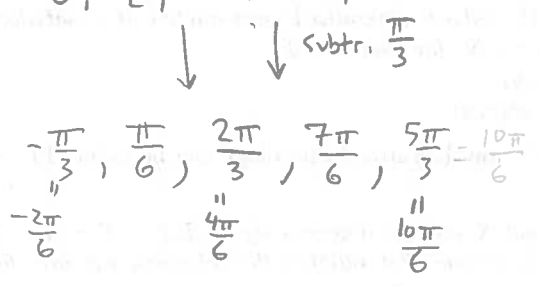 subtr. π/3
-π/3, π/6, 2π/3, 7π/6, 5π/3 = 10π/6
= -2π/6 = 4π/6 = 10π/6